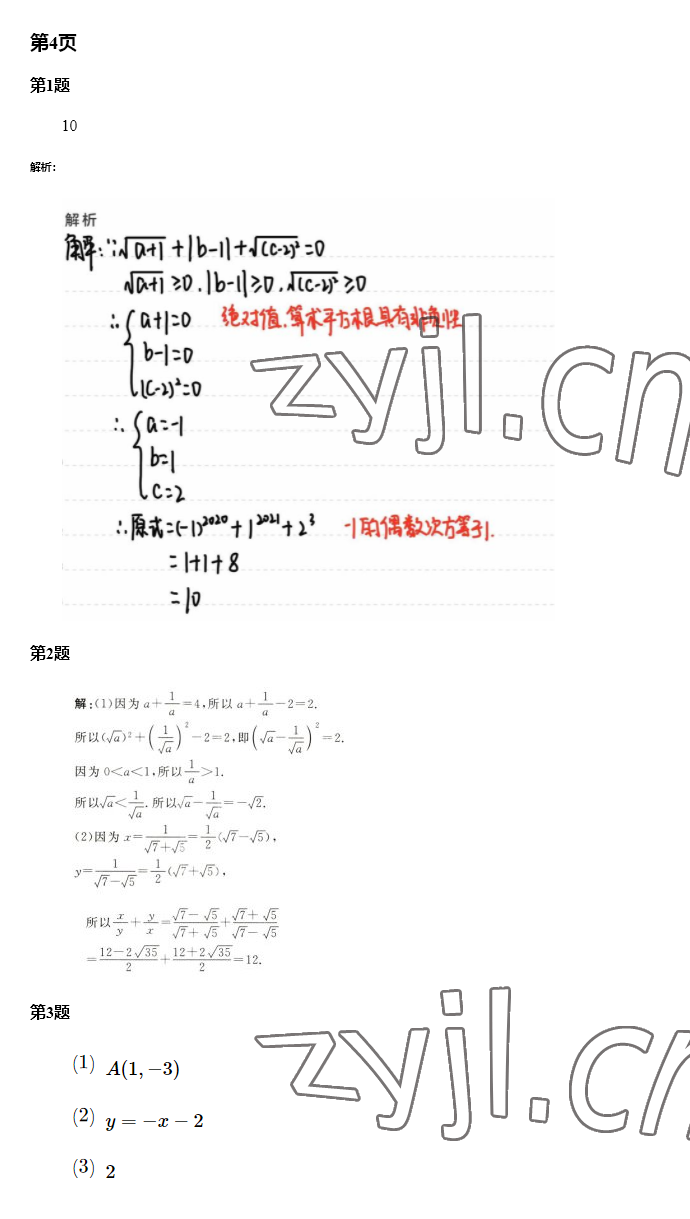 第4页
第1题
10
解析:
解析
解:∵√(a+1) + |b-1| + √((c-2)²) = 0
√(a+1) ≥0, |b-1| ≥0, √((c-2)²) ≥0
∴ { a+1=0 绝对值、算术平方根具有非负性
b-1=0
(c-2)²=0
∴ { a=-1
b=1
c=2
∴原式=(-1)²⁰²⁰ + 1²⁰²¹ + 2³ -1的偶数次方等于1.
=1+1+8
=10
第2题
解:(1)因为 a+1/a=4,所以 a+1/a-2=2.
所以(√a)²+(1/√a)²-2=2,即(√a-1/√a)²=2.
因为 0<a<1,所以1/a>1.
所以√a<1/√a.所以√a-1/√a=-√2.
(2)因为 x=1/(√7+√5)=1/2(√7-√5),
y=1/(√7-√5)=1/2(√7+√5),
所以x/y+y/x=(√7-√5)/(√7+√5)+(√7+√5)/(√7-√5)
=(12-2√35)/2+(12+2√35)/2=12.
第3题
(1) A(1,−3)
(2) y=−x−2
(3) 2
zyjl.cn
zyjl.cn